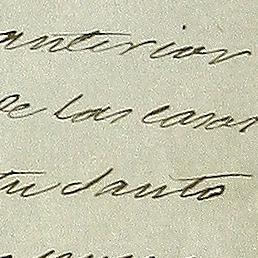 anterior
de las casas
tu Santo